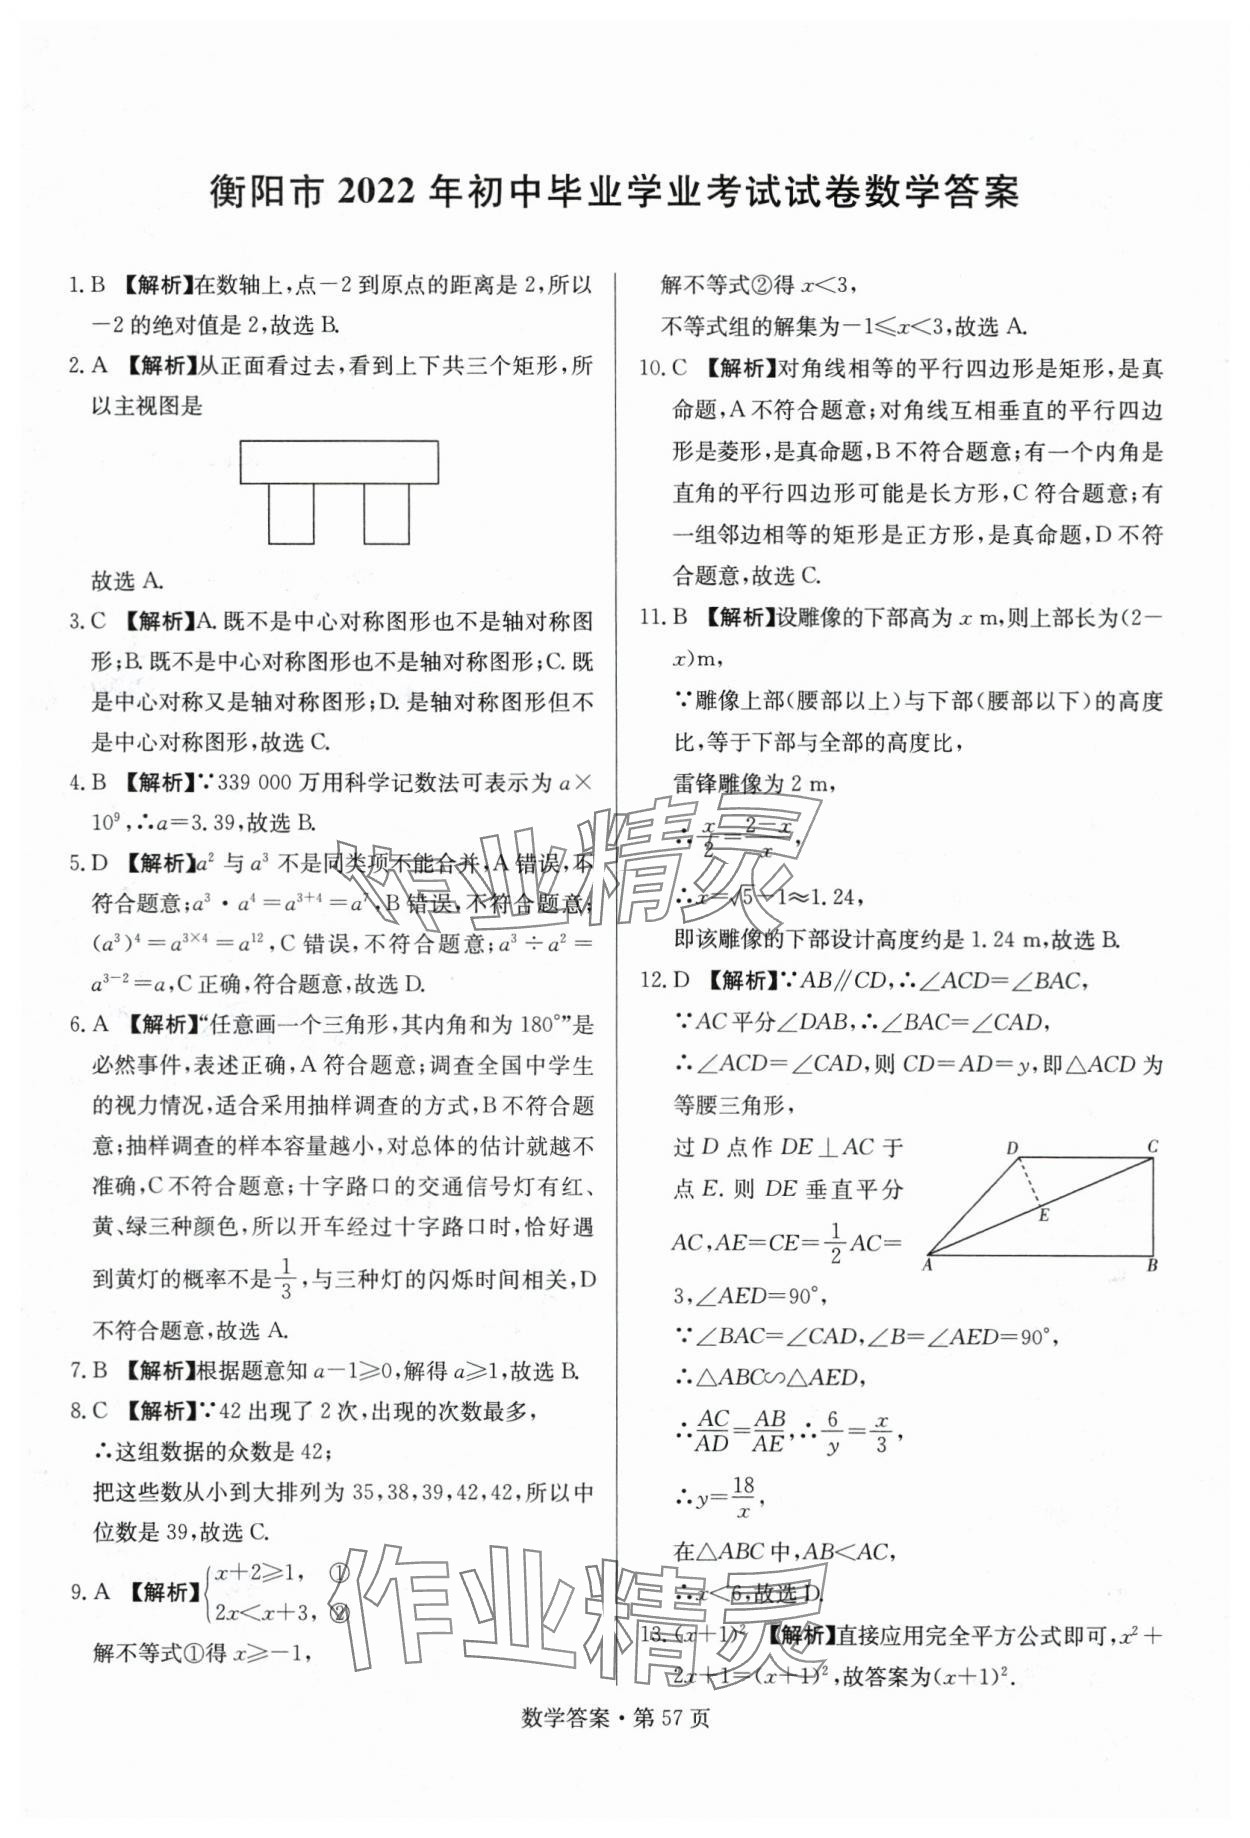 衡阳市 2022 年初中毕业学业考试试卷数学答案
1. B 【解析】在数轴上,点－2 到原点的距离是 2,所以
－2 的绝对值是 2,故选 B.
2. A 【解析】从正面看过去,看到上下共三个矩形,所
以主视图是
故选 A.
3. C 【解析】A. 既不是中心对称图形也不是轴对称图
形;B. 既不是中心对称图形也不是轴对称图形;C. 既
是中心对称又是轴对称图形;D. 是轴对称图形但不
是中心对称图形,故选 C.
4. B 【解析】∵339 000 万用科学记数法可表示为 a×
10⁹,∴a＝3.39,故选 B.
5. D 【解析】a² 与 a³ 不是同类项不能合并,A 错误,不
符合题意;a³・a⁴＝a³⁺⁴＝a⁷,B 错误,不符合题意;
(a³)⁴＝a³ˣ⁴＝a¹²,C 错误,不符合题意;a³÷a²＝
a³⁻²＝a,C 正确,符合题意,故选 D.
6. A 【解析】“任意画一个三角形,其内角和为 180°”是
必然事件,表述正确,A 符合题意;调查全国中学生
的视力情况,适合采用抽样调查的方式,B 不符合题
意;抽样调查的样本容量越小,对总体的估计就越不
准确,C 不符合题意;十字路口的交通信号灯有红、
黄、绿三种颜色,所以开车经过十字路口时,恰好遇
到黄灯的概率不是 1/3,与三种灯的闪烁时间相关,D
不符合题意,故选 A.
7. B 【解析】根据题意知 a－1≥0,解得 a≥1,故选 B.
8. C 【解析】∵42 出现了 2 次,出现的次数最多,
∴这组数据的众数是 42;
把这些数从小到大排列为 35,38,39,42,42,所以中
位数是 39,故选 C.
9. A 【解析】{x＋2≥1, ①
2x＜x＋3, ②
解不等式①得 x≥－1,
解不等式②得 x＜3,
不等式组的解集为－1≤x＜3,故选 A.
10. C 【解析】对角线相等的平行四边形是矩形,是真
命题,A 不符合题意;对角线互相垂直的平行四边
形是菱形,是真命题,B 不符合题意;有一个内角是
直角的平行四边形可能是长方形,C 符合题意;有
一组邻边相等的矩形是正方形,是真命题,D 不符
合题意,故选 C.
11. B 【解析】设雕像的下部高为 x m,则上部长为(2－
x)m,
∵雕像上部(腰部以上)与下部(腰部以下)的高度
比,等于下部与全部的高度比,
雷锋雕像为 2 m,
∴x/2＝(2－x)/x,
∴x＝√5－1≈1.24,
即该雕像的下部设计高度约是 1.24 m,故选 B.
12. D 【解析】∵AB∥CD,∴∠ACD＝∠BAC,
∵AC 平分∠DAB,∴∠BAC＝∠CAD,
∴∠ACD＝∠CAD,则 CD＝AD＝y,即△ACD 为
等腰三角形,
过 D 点作 DE⊥AC 于
点 E. 则 DE 垂直平分
AC,AE＝CE＝1/2 AC＝
3,∠AED＝90°,
D
C
E
A
B
∵∠BAC＝∠CAD,∠B＝∠AED＝90°,
∴△ABC∽△AED,
∴AC/AD＝AB/AE,∴6/y＝x/3,
∴y＝18/x,
在△ABC 中,AB＜AC,
∴x＜6,故选 D.
13. (x＋1)² 【解析】直接应用完全平方公式即可,x²＋
2x＋1＝(x＋1)²,故答案为(x＋1)².
数学答案・第 57 页
作业精灵
作业精灵